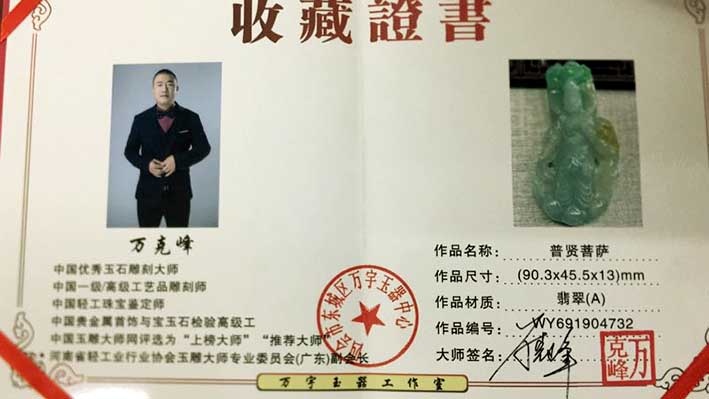 收藏證書
万克峰
中国优秀玉石雕刻大师
中国一级/高级工艺品雕刻师
中国轻工珠宝鉴定师
中国贵金属首饰与宝玉石检验高级工
中国玉雕大师网评选为“上榜大师”“推荐大师”
河南省轻工业行业协会玉雕大师专业委员会(广东)副会长
四会市东城区万宇玉器中心
作品名称: 普贤菩萨
作品尺寸: (90.3x45.5x13)mm
作品材质: 翡翠(A)
作品编号: WY691904732
大师签名: 万克峰
万克峰
万宇玉器工作室